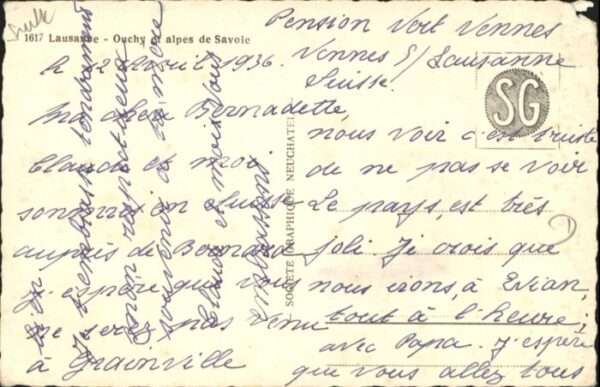 Suisse
1617 Lausanne - Ouchy et alpes de Savoie
Pension Vert Vennes
Vennes s/ Lausanne
Suisse.
le 2 Avril 1936.
Ma chère Bernadette,
Claude et moi
sommes en Suisse
auprès de Bernard
J'espère que vous
ne serez pas venu
à Grainville
nous voir c'est triste
de ne pas se voir
Le pays est très
joli. Je crois que
nous irons, à Evian,
tout à l'heure,
avec Papa. J'espère
que vous allez tous
bien
Je t'embrasse tendrement
mon respectueux
souvenir à ta mère
Claude et moi vous
embrassons
SOCIÉTÉ GRAPHIQUE NEUCHATEL
SG